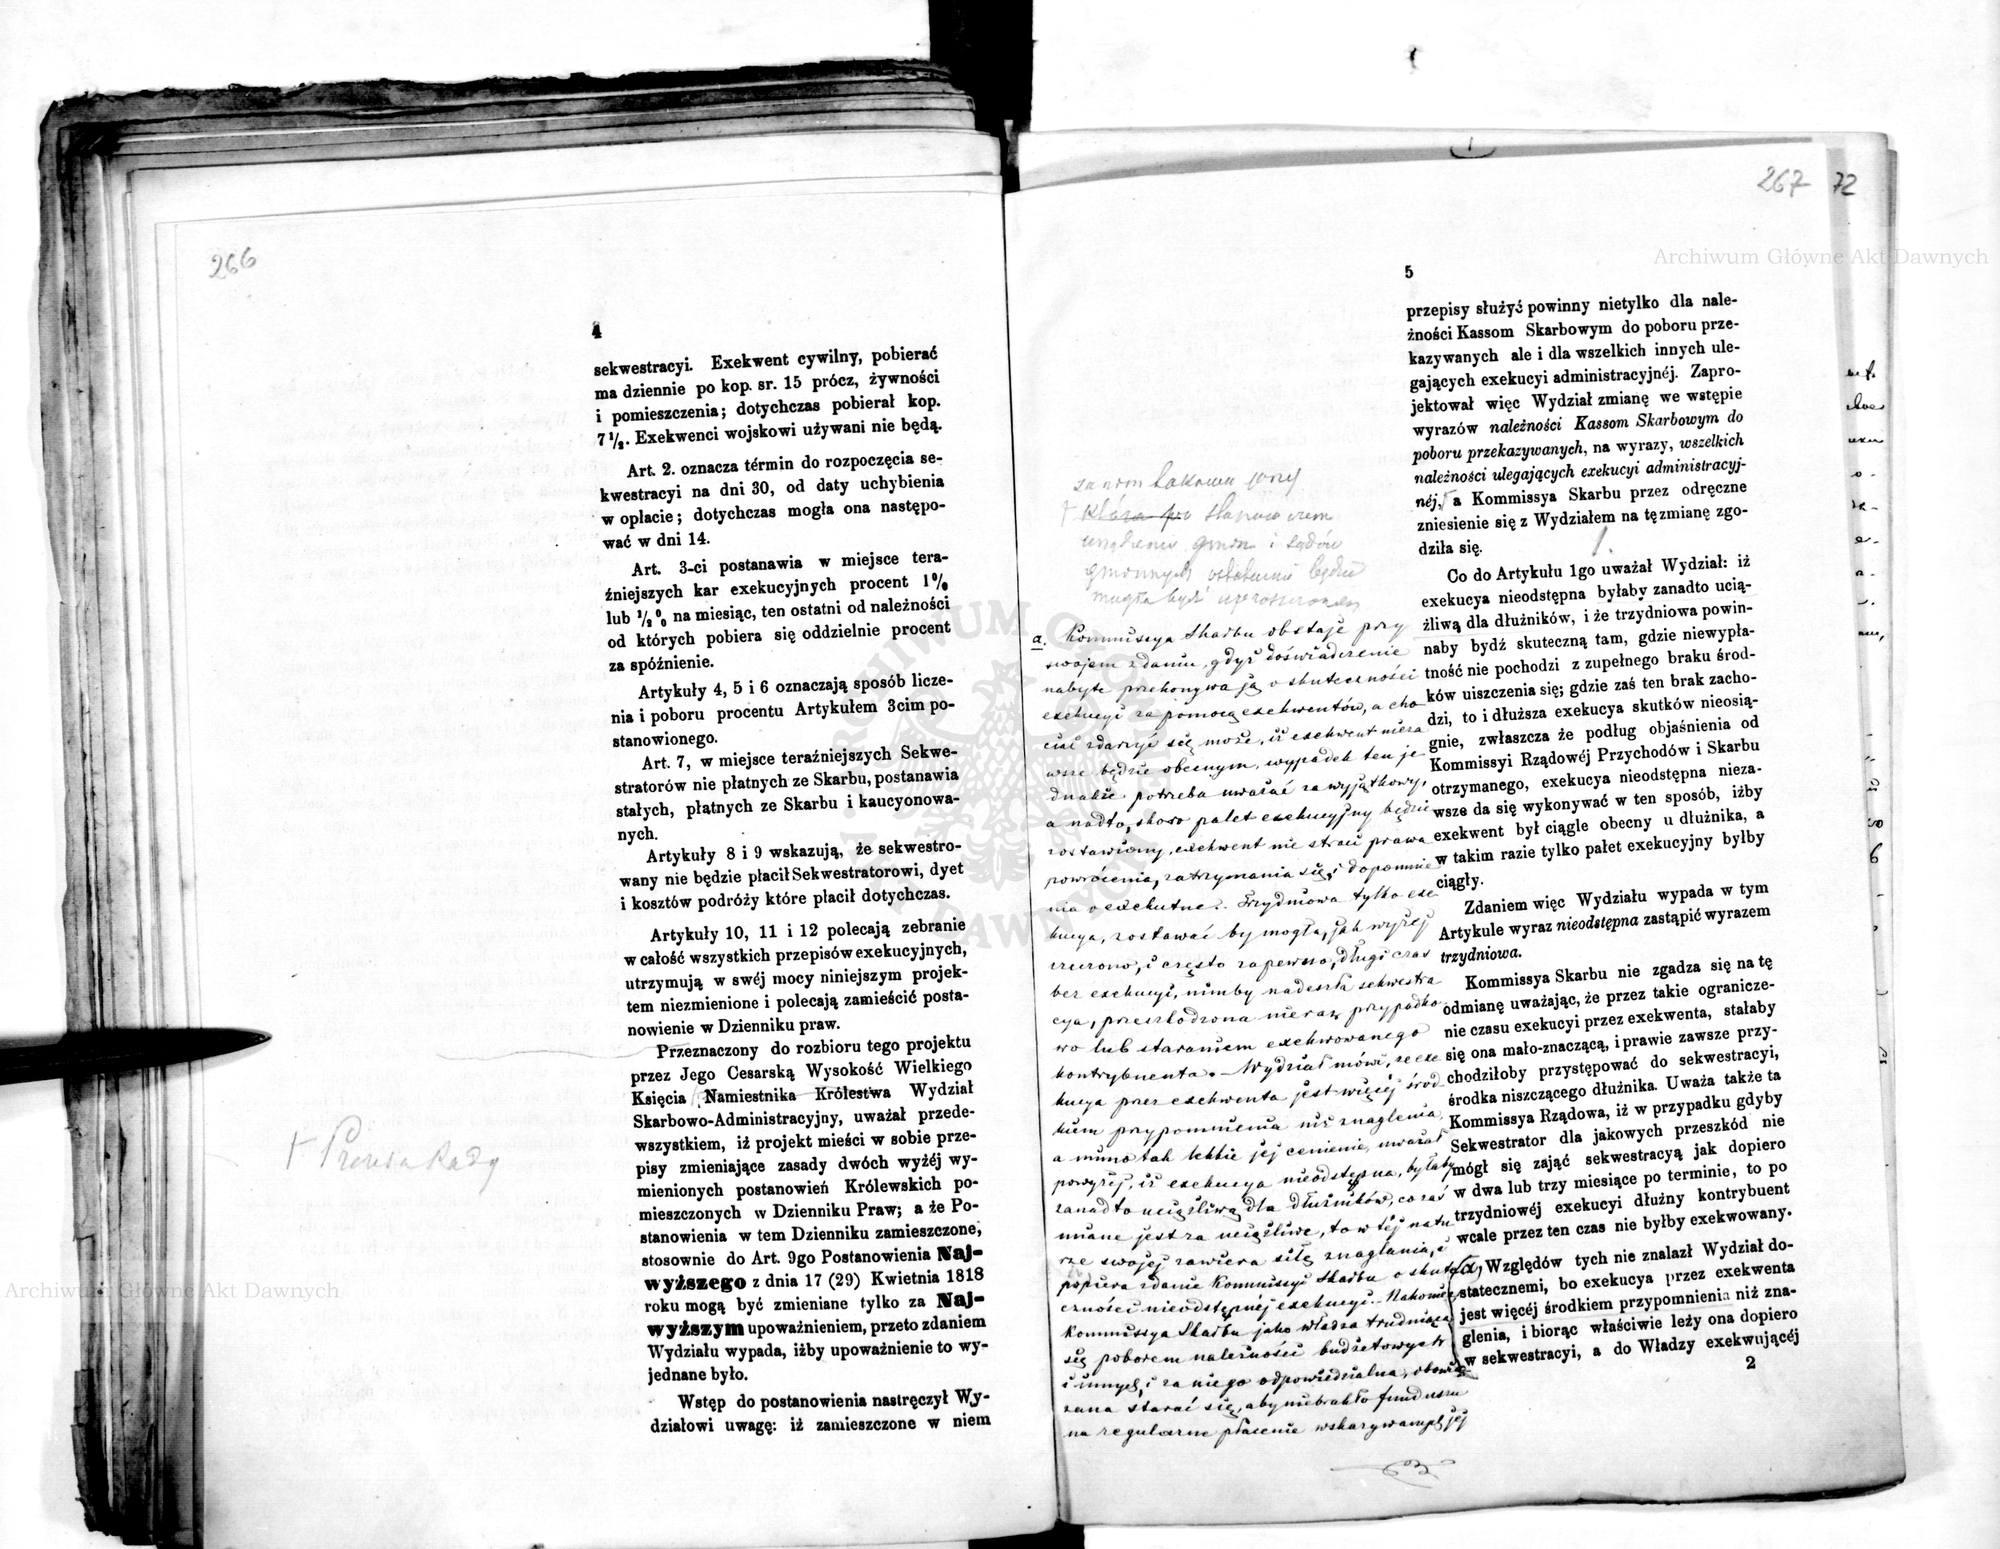 266
4
sekwestracyi. Exekwent cywilny, pobierać
ma dziennie po kop. sr. 15 prócz, żywności
i pomieszczenia; dotychczas pobierał kop.
7 1/2. Exekwenci wojskowi używani nie będą.
Art. 2. oznacza términ do rozpoczęcia se-
kwestracyi na dni 30, od daty uchybienia
w opłacie; dotychczas mogła ona nastepo-
wać w dni 14.
Art. 3-ci postanawia w miejsce tera-
źniejszych kar exekucyjnych procent 1%
lub 1/2 % na miesiąc, ten ostatni od należności
od których pobiera się oddzielnie procent
za spóźnienie.
Artykuły 4, 5 i 6 oznaczają sposób licze-
nia i poboru procentu Artykułem 3cim po-
stanowionego.
Art. 7, w miejsce teraźniejszych Sekwe-
stratorów nie płatnych ze Skarbu, postanawia
stałych, płatnych ze Skarbu i kaucyonowa-
nych.
Artykuły 8 i 9 wskazują, że sekwestro-
wany nie będzie płacił Sekwestratorowi, dyet
i kosztów podróży które płacił dotychczas.
Artykuły 10, 11 i 12 polecają zebranie
w całość wszystkich przepisów exekucyjnych,
utrzymują w swéj mocy niniejszym projek-
tem niezmienione i polecają zamieścić posta-
nowienie w Dzienniku praw.
Przeznaczony do rozbioru tego projektu
przez Jego Cesarską Wysokość Wielkiego
Księcia Namiestnika Królestwa Wydział
Skarbowo-Administracyjny, uważał przede-
wszystkiem, iż projekt mieści w sobie prze-
pisy zmieniające zasady dwóch wyżéj wy-
mienionych postanowień Królewskich po-
mieszczonych w Dzienniku Praw; a że Po-
stanowienia w tem Dzienniku zamieszczone,
stosownie do Art. 9go Postanowienia Naj-
wyższego z dnia 17 (29) Kwietnia 1818
roku mogą być zmieniane tylko za Naj-
wyższym upoważnieniem, przeto zdaniem
Wydziału wypada, iżby upoważnienie to wy-
jednane było.
Wstęp do postanowienia nastręczył Wy-
działowi uwagę: iż zamieszczone w niem
† Prezesa Rady
267 72
5
przepisy służyć powinny nietylko dla nale-
żności Kassom Skarbowym do poboru prze-
kazywanych ale i dla wszelkich innych ule-
gających exekucyi administracyjnéj. Zapro-
jektował więc Wydział zmianę we wstępie
wyrazów należności Kassom Skarbowym do
poboru przekazywanych, na wyrazy, wszelkich
należności ulegających exekucyi administracyj-
néj, a Kommissya Skarbu przez odręczne
zniesienie się z Wydziałem na tę zmianę zgo-
dziła się.
Co do Artykułu 1go uważał Wydział: iż
exekucya nieodstępna byłaby zanadto ucią-
żliwą dla dłużników, i że trzydniowa powin-
naby bydź skuteczną tam, gdzie niewypła-
tność nie pochodzi z zupełnego braku środ-
ków uiszczenia się; gdzie zaś ten brak zacho-
dzi, to i dłuższa exekucya skutków nieosią-
gnie, zwłaszcza że podług objaśnienia od
Kommissyi Rządowéj Przychodów i Skarbu
otrzymanego, exekucya nieodstępna nieza-
wsze da się wykonywać w ten sposób, iżby
exekwent był ciągle obecny u dłużnika, a
w takim razie tylko palet exekucyjny byłby
ciągły.
Zdaniem więc Wydziału wypada w tym
Artykule wyraz nieodstępna zastąpić wyrazem
trzydniowa.
Kommissya Skarbu nie zgadza się na tę
odmianę uważając, że przez takie ogranicze-
nie czasu exekucyi przez exekwenta, stałaby
się ona mało-znaczącą, i prawie zawsze przy-
chodziłoby przystępować do sekwestracyi,
środka niszczącego dłużnika. Uważa także ta
Kommissya Rządowa, iż w przypadku gdyby
Sekwestrator dla jakowych przeszkód nie
mógł się zająć sekwestracyą jak dopiero
w dwa lub trzy miesiące po terminie, to po
trzydniowéj exekucyi dłużny kontrybuent
wcale przez ten czas nie byłby exekwowany.
(a) Względów tych nie znalazł Wydział do-
statecznemi, bo exekucya przez exekwenta
jest więcéj środkiem przypomnienia niż zna-
glenia, i biorąc właściwie leży ona dopiero
w sekwestracyi, a do Władzy exekwującéj
2
urządzenie gmin i sądów
gminnych
a. Kommissya Skarbu obstaje przy
swojem zdaniu, gdyż doświadczenie
nabyte przekonywa ją o skuteczności
exekucyi za pomocą exekwentów, a cho
ciaż zdarzyć się może, iż exekwent nieza
wsze będzie obecnym, wypadek ten je
dnakże potrzeba uważać za wyjątkowy,
a nadto, skoro palet exekucyjny będzie
zostawiony, exekwent nie straci prawa
powrócenia, zatrzymania się, i dopomnie
nia o exekutne. Trzydniowa tylko exe
kucya, zostawać by mogła, jak wyżej
rzeczono, i często zapewne, długi czas
bez exekucyi, nimby nadeszła sekwestra
cya, przeszkodzona nieraz przypadko
wo lub staraniem exekwowanego
kontrybuenta. Wydział mówi, że exe
kucya przez exekwenta jest więcej środ
kiem przypomnienia niż znaglenia,
a mimo tak lekkie jej cenienie, uważał
powyżej, iż exekucya nieodstępna, byłaby
zanadto uciążliwą dla dłużników, co zaś
miane jest za uciążliwe, to w tej natu
rze swojej zawiera siłę znaglania, i
popiera zdanie Kommissyi Skarbu o skute
czności nieodstępnéj exekucyi. Nakoniec
Kommissya Skarbu jako władza trudniąca
się poborem należności budżetowych
i innych, i za niego odpowiedzialna, obowią
zana starać się, aby niebrakło funduszu
na regularne płacenie wskazywanych jej
Archiwum Główne Akt Dawnych
Archiwum Główne Akt Dawnych
ARCHIWUM GŁÓWNE AKT DAWNYCH